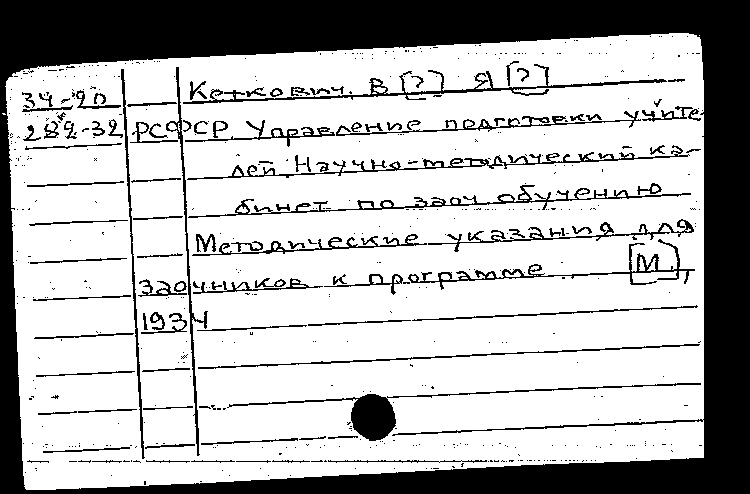 34-90
Кеткович, В [?] Я [?]
289-32 РСФСР Управление подготовки учите-
лей. Научно-методический ка-
бинет по заоч обучению
Методические указания для
заочников к программе .. [М.],
1934